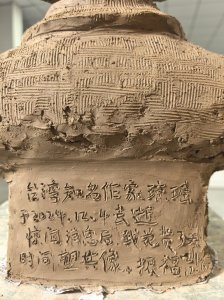 台湾知名作家琼瑶
于2024.12.4去逝
惊闻消息后,我花费3小
时间塑其像。